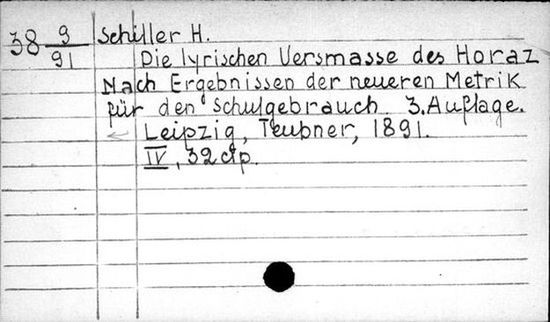 38 9/91 Schiller H.
Die lyrischen Versmasse des Horaz
Nach Ergebnissen der neueren Metrik
für den Schulgebrauch. 3. Auflage.
Leipzig, Teubner, 1891.
IV, 32 стр.